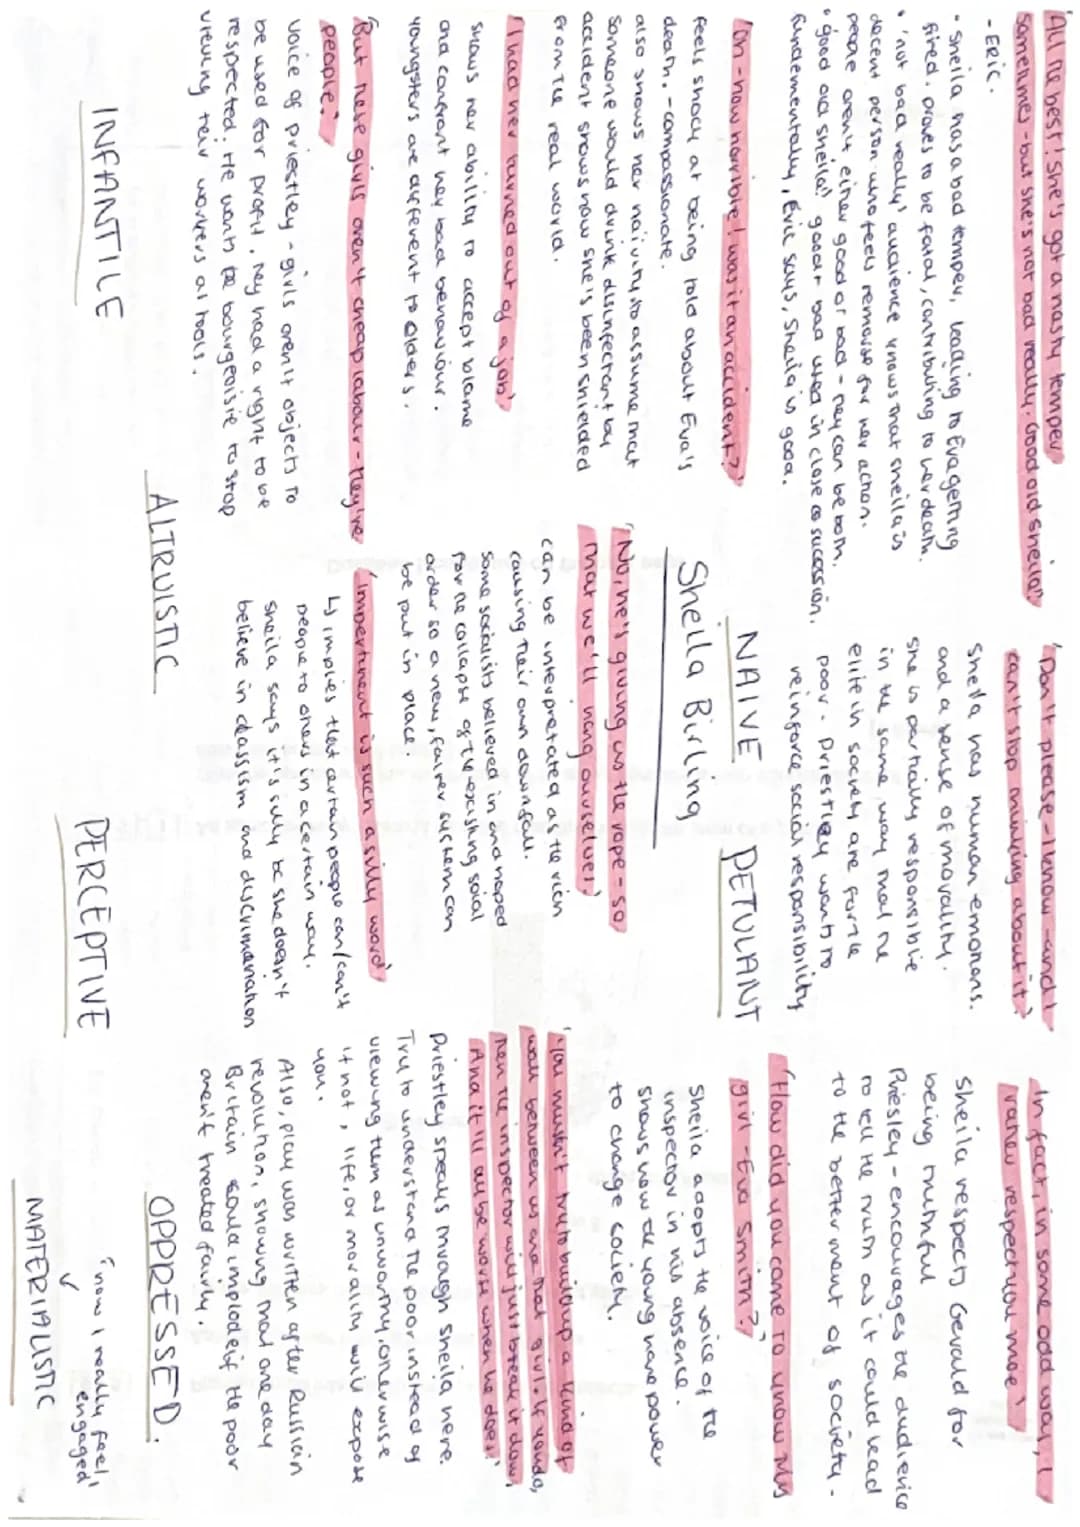 'All the best! she's got a nasty temper
sometimes - but she's not bad really. Good old Sheila!'
- ERIC.
• Sheila has a bad temper, leading to Eva getting
fired. proves to be fatal, contributing to her death.
• 'not bad really' audience knows that sheila is
decent person who feels remorse for her action.
people aren't either good or bad - they can be both.
• 'good old sheila!' good + bad used in close succession.
fundementally, Eric says, Sheila is good.
'Don't please - I know - and I
can't stop thinking about it'
Sheila has human emotions.
and a sense of morality.
She is partially responsible
in the same way that the
elite in society are for the
poor. Priestley wants to
reinforce social responsibility
'In fact, in some odd way, I
rather respect you more'
Sheila respects Gerald for
being truthful
Priestley - encourages the audience
to tell the truth as it could lead
to the betterment of society.
'Oh - how horrible! was it an accident?'
feels shocy at being told about Eva's
death. - compassionate.
also shows her naivity, to assume that
someone would drunk disinfectant by
accident shows how she's been shielded
from the real world.
NAIVE
PETULANT
'How did you come to know this
girl - Eva Smith?'
Sheila adopts the voice of the
inspector in his absence.
Shows how the young have power
to change society.
Sheila Birling
'I had her turned out of a job'
shows her ability to accept blame
and confront her bad behaviour.
youngsters are different to elders.
'No, he's giving us the rope - so
that we'll hang ourselves'
can be interpretated as the rich
causing their own downfall.
some socialists believed in and hoped
for the collapse of the existing social
order so a new, fairer system can
be put in place.
'You mustn't try to build up a kind of
wall between us and that girl. If you do,
then the inspector will just break it down.
And it'll all be worse when he does.'
Priestley speaks through Sheila here.
Try to understand the poor instead of
viewing them as unworthy, otherwise
if not, life, or morality will expose
you.
Also, play was written after Russian
revolution, showing that one day
Britain could implode if the poor
aren't treated fairly.
'But these girls aren't cheap labour - they're
people.'
voice of priestley - girls aren't objects to
be used for profit, they had a right to be
respected. He wants the bourgeoisie to stop
viewing their workers as tools.
'Impertinent is such a silly word'
↳ implies that certain people can/can't
people to others in a certain way.
Sheila says it's silly bc she doesn't
believe in classism and discrimination
INFANTILE
ALTRUISTIC
PERCEPTIVE
OPPRESSED.
'now I really feel
engaged'
MATERIALISTIC